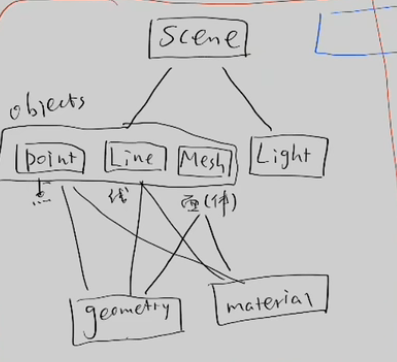 Scene
objects
point Line Mesh Light
点 线 面(体)
geometry material